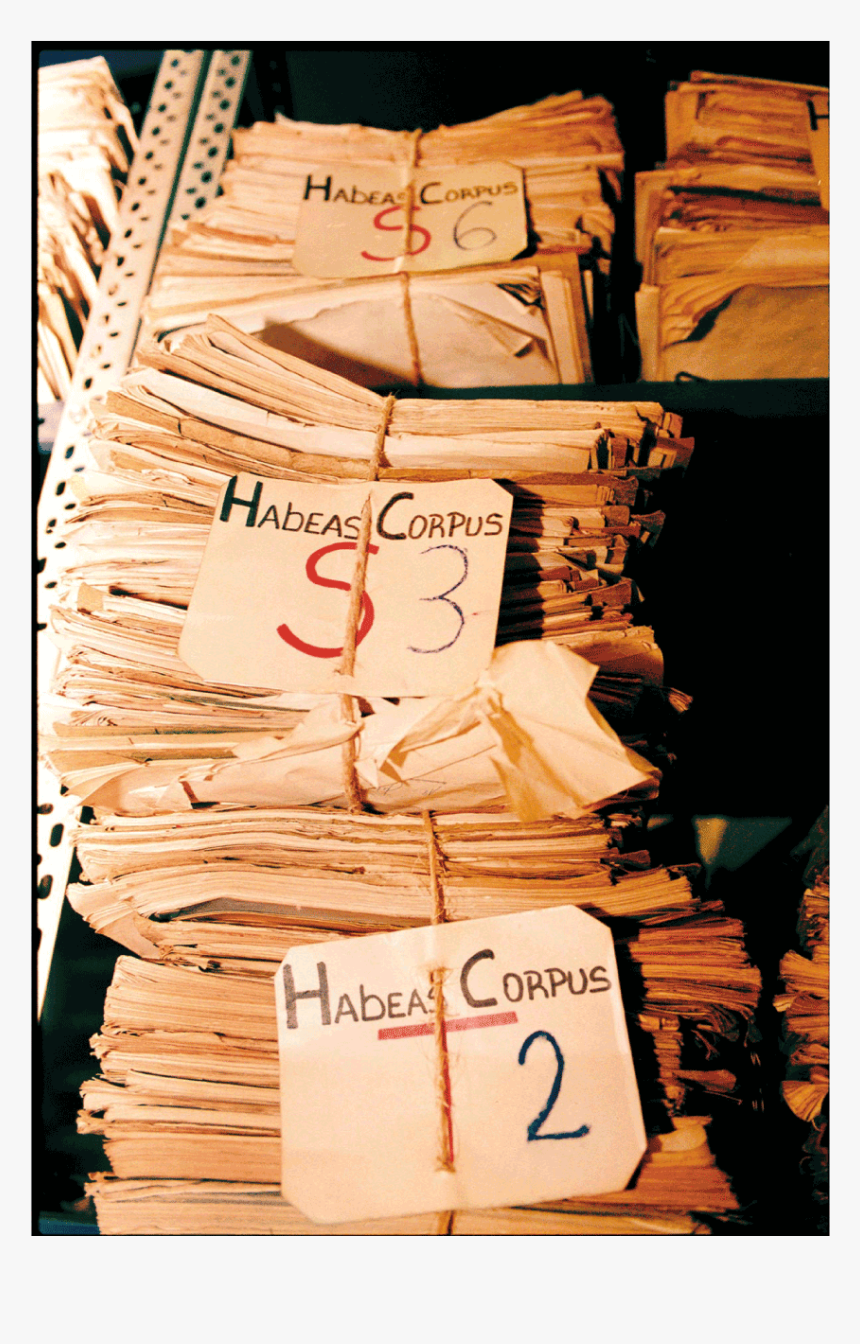 Habeas Corpus
S 6
Habeas Corpus
S 3
Habeas Corpus
2